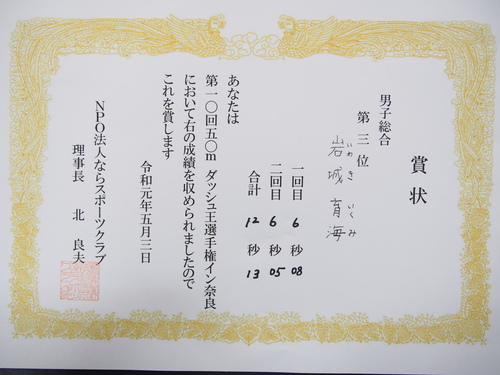 賞状
男子総合
第三位
岩城育海
いわき いくみ
一回目 6秒08
二回目 6秒05
合計 12秒13
あなたは
第一〇回五〇mダッシュ王選手権イン奈良
において右の成績を収められましたので
これを賞します
令和元年五月三日
NPO法人ならスポーツクラブ
理事長 北 良夫